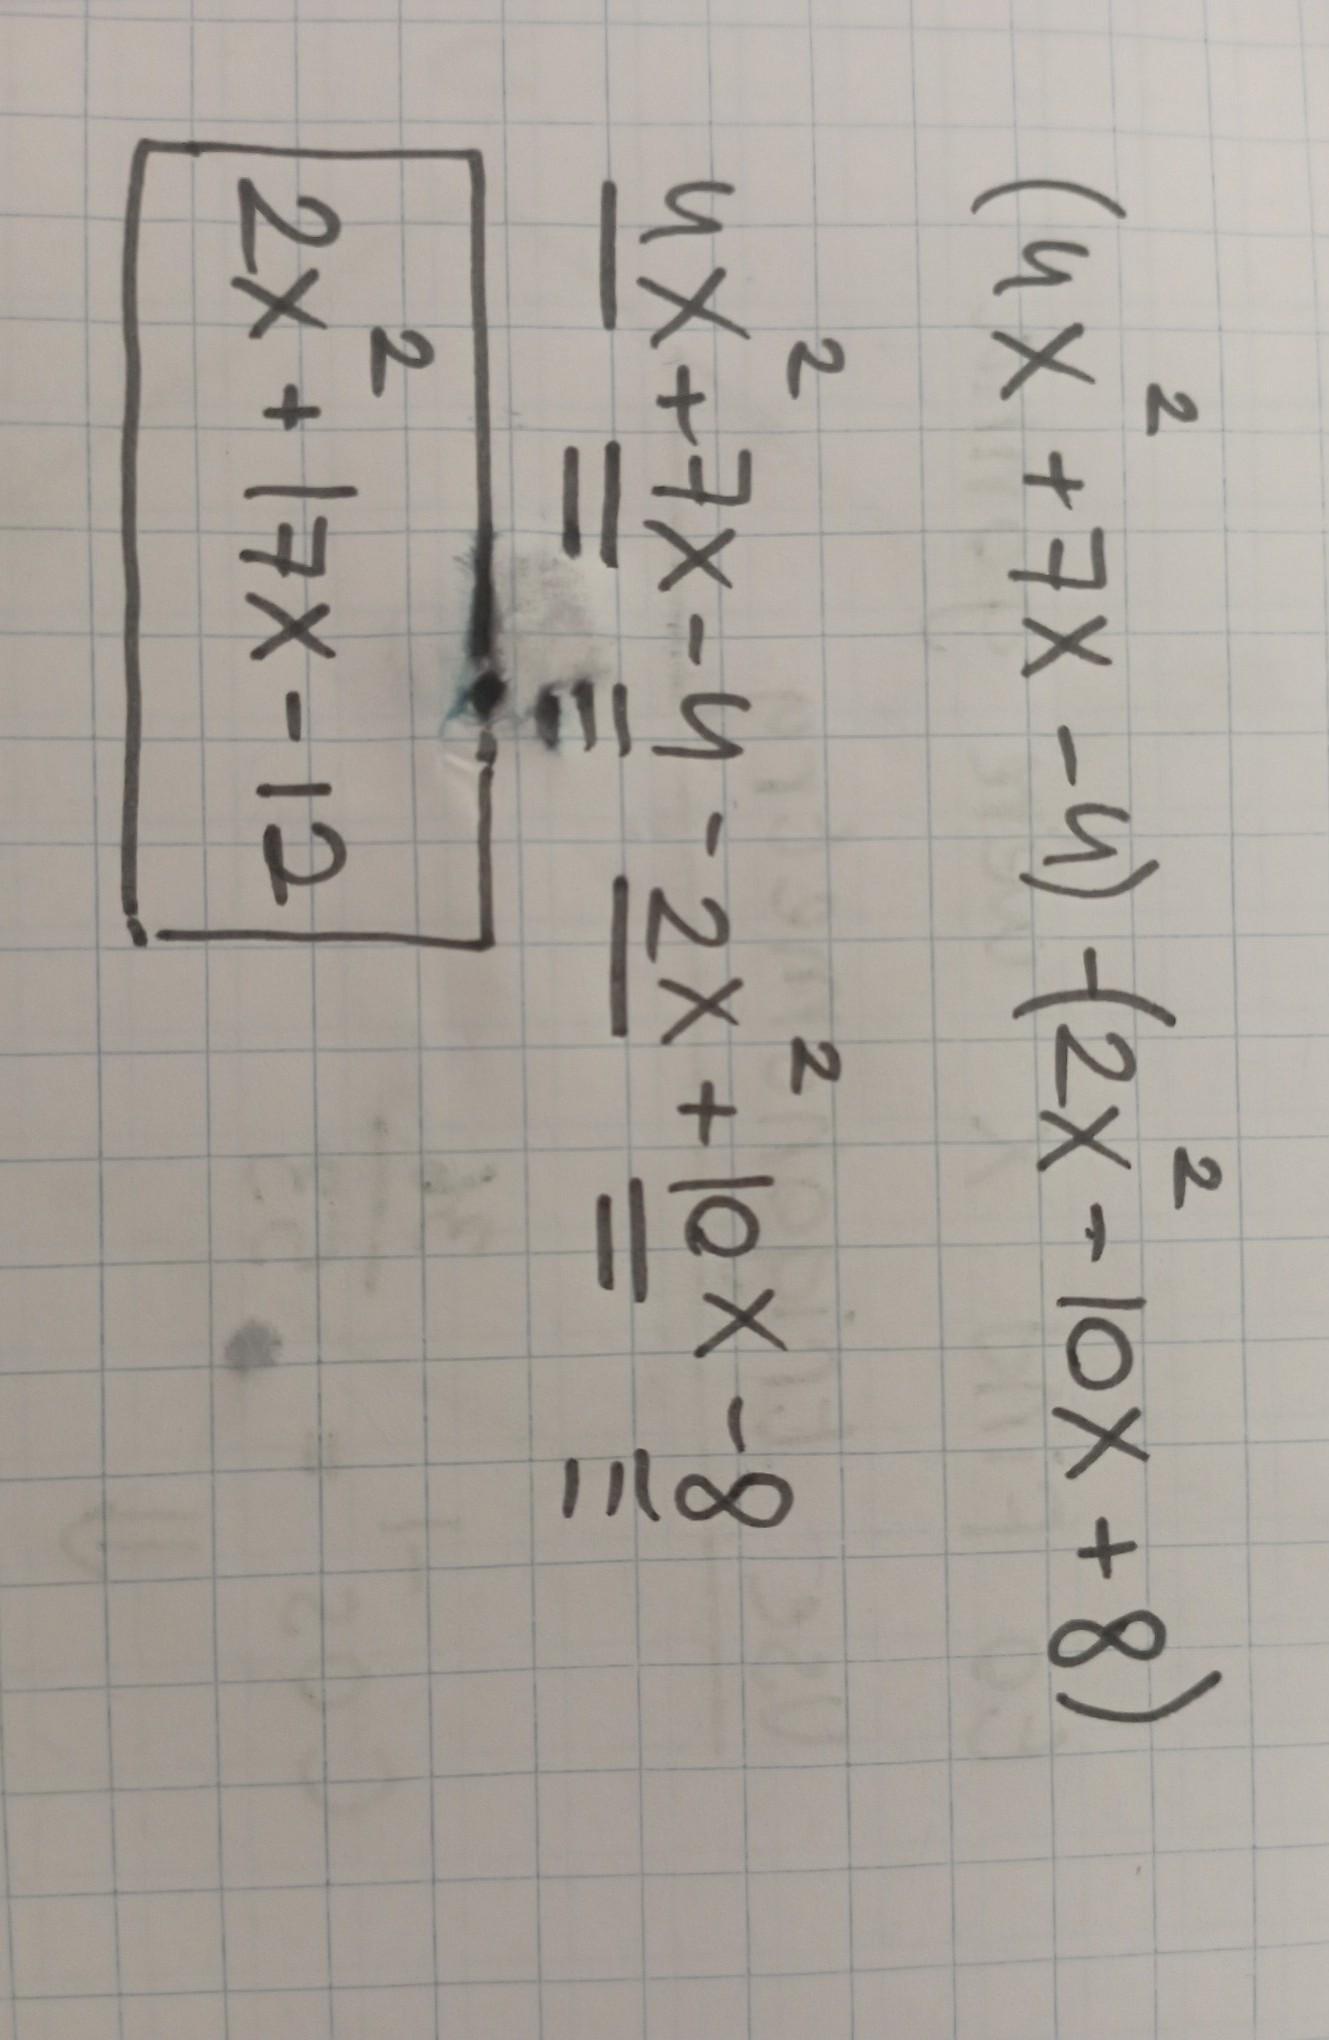 (4x² + 7x - 4) - (2x² - 10x + 8)
4x² + 7x - 4 - 2x² + 10x - 8
2x² + 17x - 12